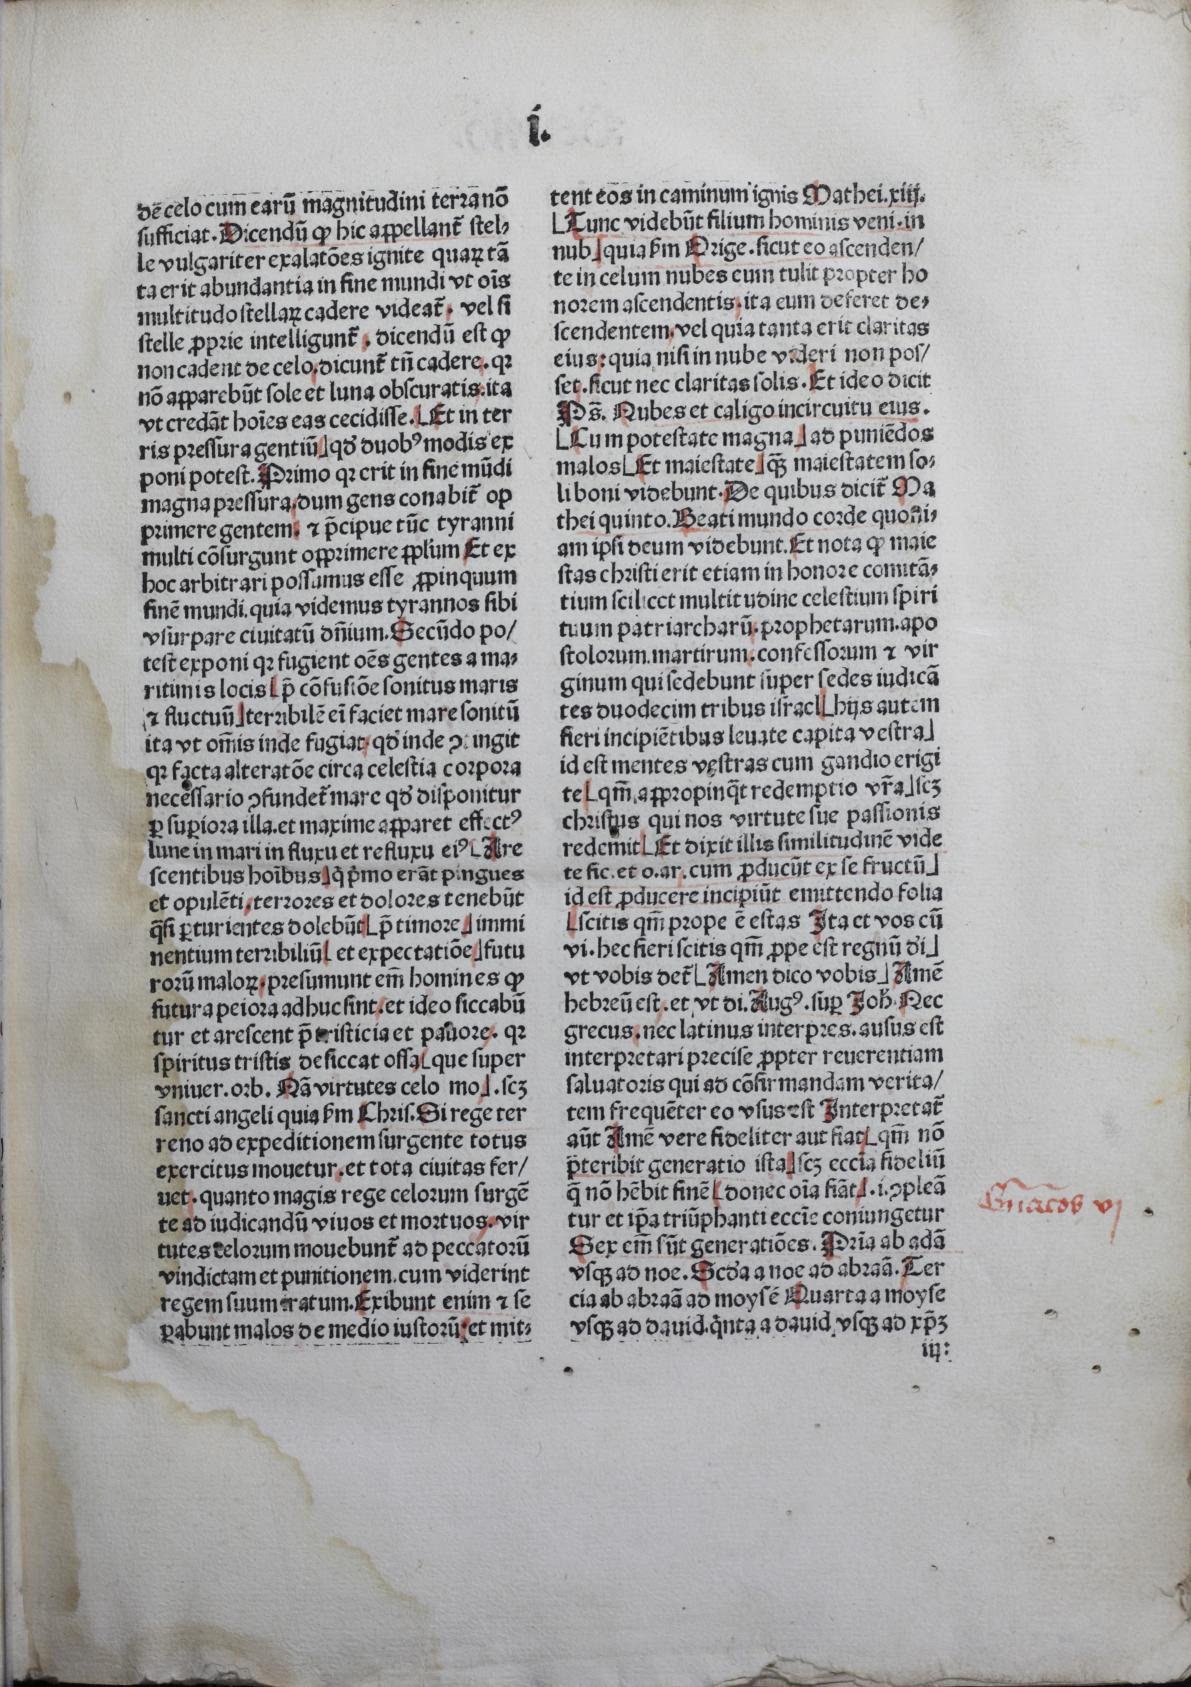 i.
dē celo cum earū magnitudini terra nō
sufficiat. Dicendū ꝙ hic appellant̄ stel⸗
le vulgariter exalatōes ignite quaꝝ tā
ta erit abundantia in fine mundi vt oīs
multitudo stellaꝝ cadere videat̄. vel si
stelle ꝓprie intelligunt̄. dicendū est ꝙ
non cadent de celo. dicunt̄ tn̄ cadere. qꝛ
nō apparebūt sole et luna obscuratis. ita
vt credāt hoīes eas cecidisse. ⌊Et in ter
ris pressura gentiū⌋ qđ duobꝰ modis ex
poni potest. Primo qꝛ erit in fine mūdi
magna pressura. dum gens conabit̄ op
primere gentem. ⁊ p̄cipue tūc tyranni
multi cōsurgunt opprimere ꝓplūm Et ex
hoc arbitrari possumus esse ꝓpinquum
finē mundi. quia videmus tyrannos sibi
vsurpare ciuitatū dn̄ium. Secūdo po/
test exponi qꝛ fugient oēs gentes a ma⸗
ritimis locis⌊ p̄ cōfusiōe sonitus maris
⁊ fluctuū⌋ terribilē eī faciet mare sonitū
ita vt om̄is inde fugiat. qđ inde ꝯtingit
qꝛ facta alteratōe circa celestia corpora
necessario ꝯfundet̄ mare qđ disponitur
ꝑ supiora illa. et maxime apparet effectꝰ
lune in mari in fluxu et refluxu eiꝰ ⌊Are
scentibus hoībus⌋ q̄ pͥmo erāt pingues
et opulēti. terrores et dolores tenebūt
q̄si ꝑturientes dolebūt⌊ p̄ timore⌋ immi
nentium terribiliū⌊ et expectatiōe⌋ futu
rorū maloꝝ. presumunt em̄ homines ꝙ
futura peiora adhuc sint. et ideo siccabū
tur et arescent p̄ tristicia et pauore. qꝛ
spiritus tristis desiccat ossa⌊ que super
vniuer. orb. Nā virtutes celo mo⌋. scꝫ
sancti angeli quia ẜm Chris. Si rege ter
reno ad expeditionem surgente totus
exercitus mouetur. et tota ciuitas fer/
uet. quanto magis rege celorum surgē
te ad iudicandū viuos et mortuos. vir
tutes celorum mouebunt̄ ad peccatorū
vindictam et punitionem. cum viderint
regem suum iratum. Exibunt enim ⁊ se
ꝑabunt malos de medio iustorū: et mit⸗
tent eos in caminum ignis Mathei. xiij.
⌊Tunc videbūt filium hominis veni. in
nub⌋ quia ẜm Orige. sicut eo ascenden/
te in celum nubes eum tulit propter ho
norem ascendentis. ita eum deferet de⸗
scendentem. vel quia tanta erit claritas
eius: quia nisi in nube videri non pos/
set. sicut nec claritas solis. Et ideo dicit
Ps̄. Nubes et caligo incircuitu eius.
⌊Cum potestate magna⌋ ad puniēdos
malos⌊Et maiestate⌋ qꝫ maiestatem so⸗
li boni videbunt. De quibus dicit̄ Ma
thei quinto. Beati mundo corde quoni⸗
am ipsi deum videbunt. Et nota ꝙ maie
stas christi erit etiam in honore comitā⸗
tium scilicet multitudine celestium spiri
tuum patriarcharū. prophetarum. apo
stolorum. martirum. confessorum ⁊ vir
ginum qui sedebunt super sedes iudicā
tes duodecim tribus israel⌊hijs autem
fieri incipiētibus leuate capita vestra⌋
id est mentes vestras cum gandio erigi
te⌊ qm̄ appropinq̄t redemptio vr̄a⌋ scꝫ
christus qui nos virtute sue passionis
redemit⌊Et dixit illis similitudinē vide
te fic. et o. ar. cum ꝓducūt ex se fructū⌋
id est ꝓducere incipiūt emittendo folia
⌊scitis qm̄ prope ē estas Ita et vos cū
vi. hec fieri scitis qm̄ ꝓpe est regnū di⌋
vt vobis det̄⌊Amen dico vobis⌋ Amē
hebreū est. et vt di. Augꝰ. suꝑ Joh. Nec
grecus. nec latinus interpres. ausus est
interpretari precise ꝓpter reuerentiam
saluatoris qui ad cōfirmandam verita/
tem frequēter eo vsus est Interpretat̄
aūt Amē vere fideliter aut fiat⌊qm̄ nō
p̄teribit generatio ista⌋ scꝫ eccīa fideliū
q̄ nō hēbit finē⌊donec oīa fiāt⌋. i. ꝯpleā
tur et ip̄a triūphanti eccīe coniungetur
Sex em̄ sūt generatiōes. Prīa ab adā
vsqꝫ ad noe. Scđa a noe ad abraā. Ter
cia ab abraā ad moysē Quarta a moyse
vsqꝫ ad dauid. qͥnta a dauid. vsqꝫ ad xp̄ꝫ
iij: